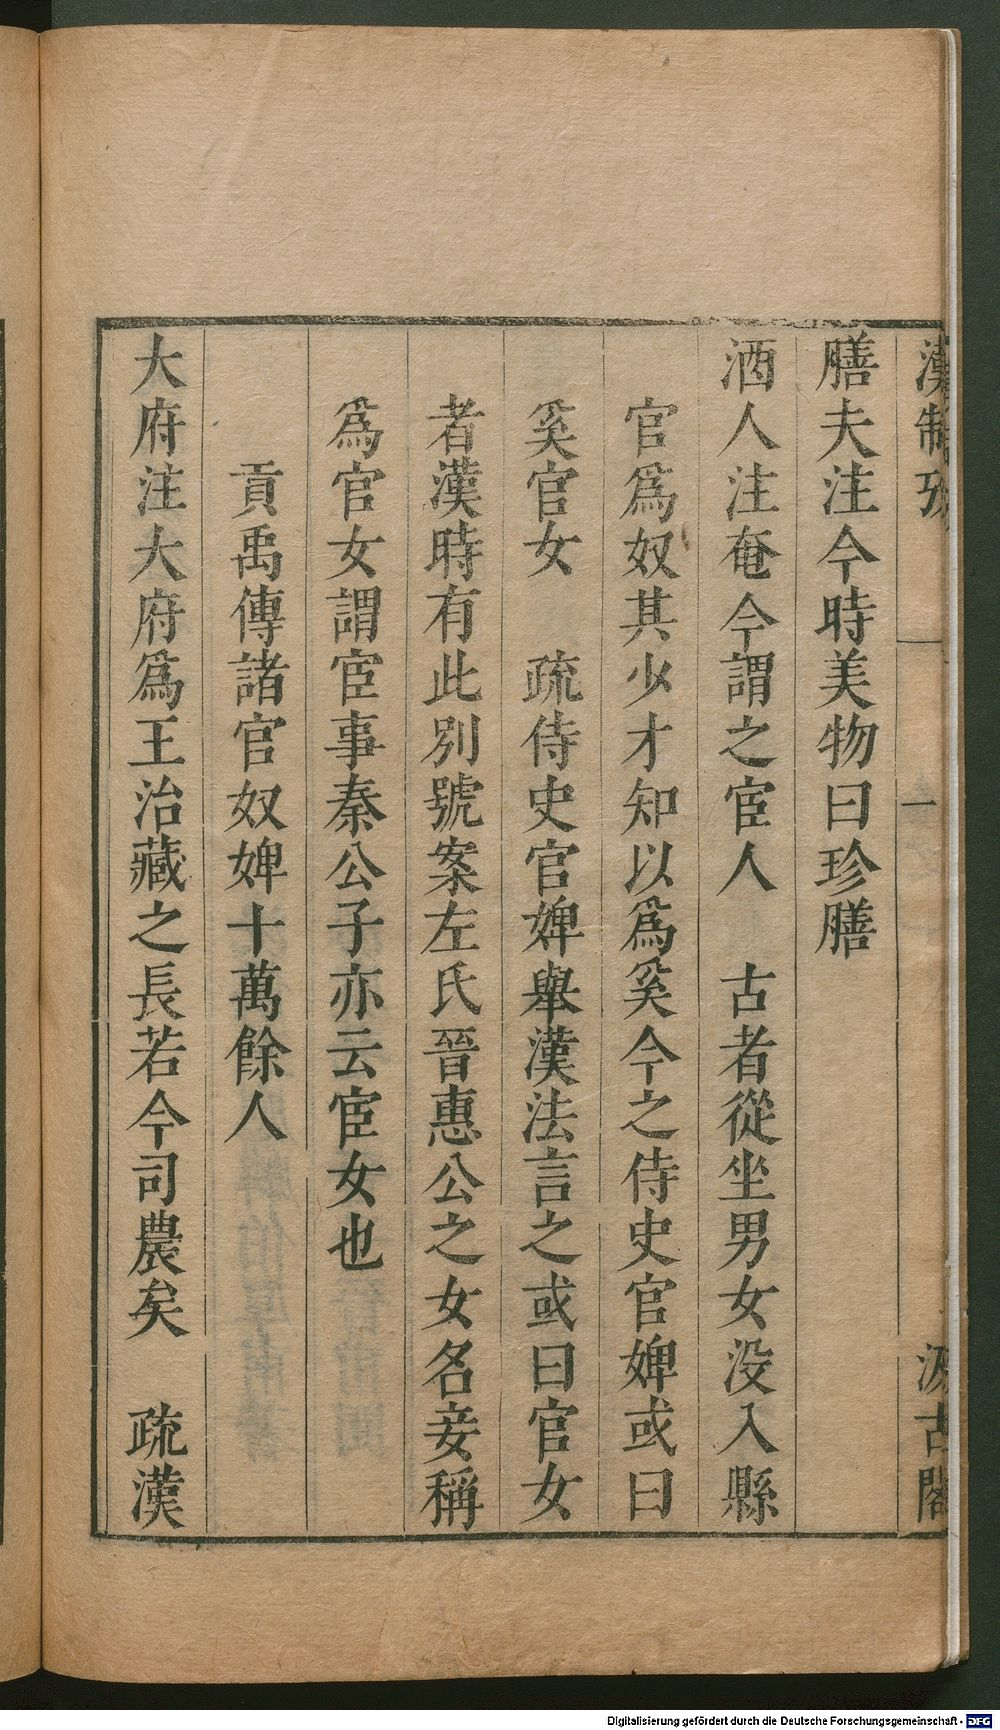 漢制攷 一 汲古閣
膳夫注今時美物曰珍膳
酒人注奄今謂之宦人 古者從坐男女没入縣
官爲奴其少才知以爲奚今之侍史官婢或曰
奚官女 疏侍史官婢舉漢法言之或曰官女
者漢時有此别號案左氏晉惠公之女名妾稱
爲宦女謂宦事秦公子亦云宦女也
貢禹傳諸官奴婢十萬餘人
大府注大府爲王治藏之長若今司農矣 疏漢
Digitalisierung gefördert durch die Deutsche Forschungsgemeinschaft - DFG